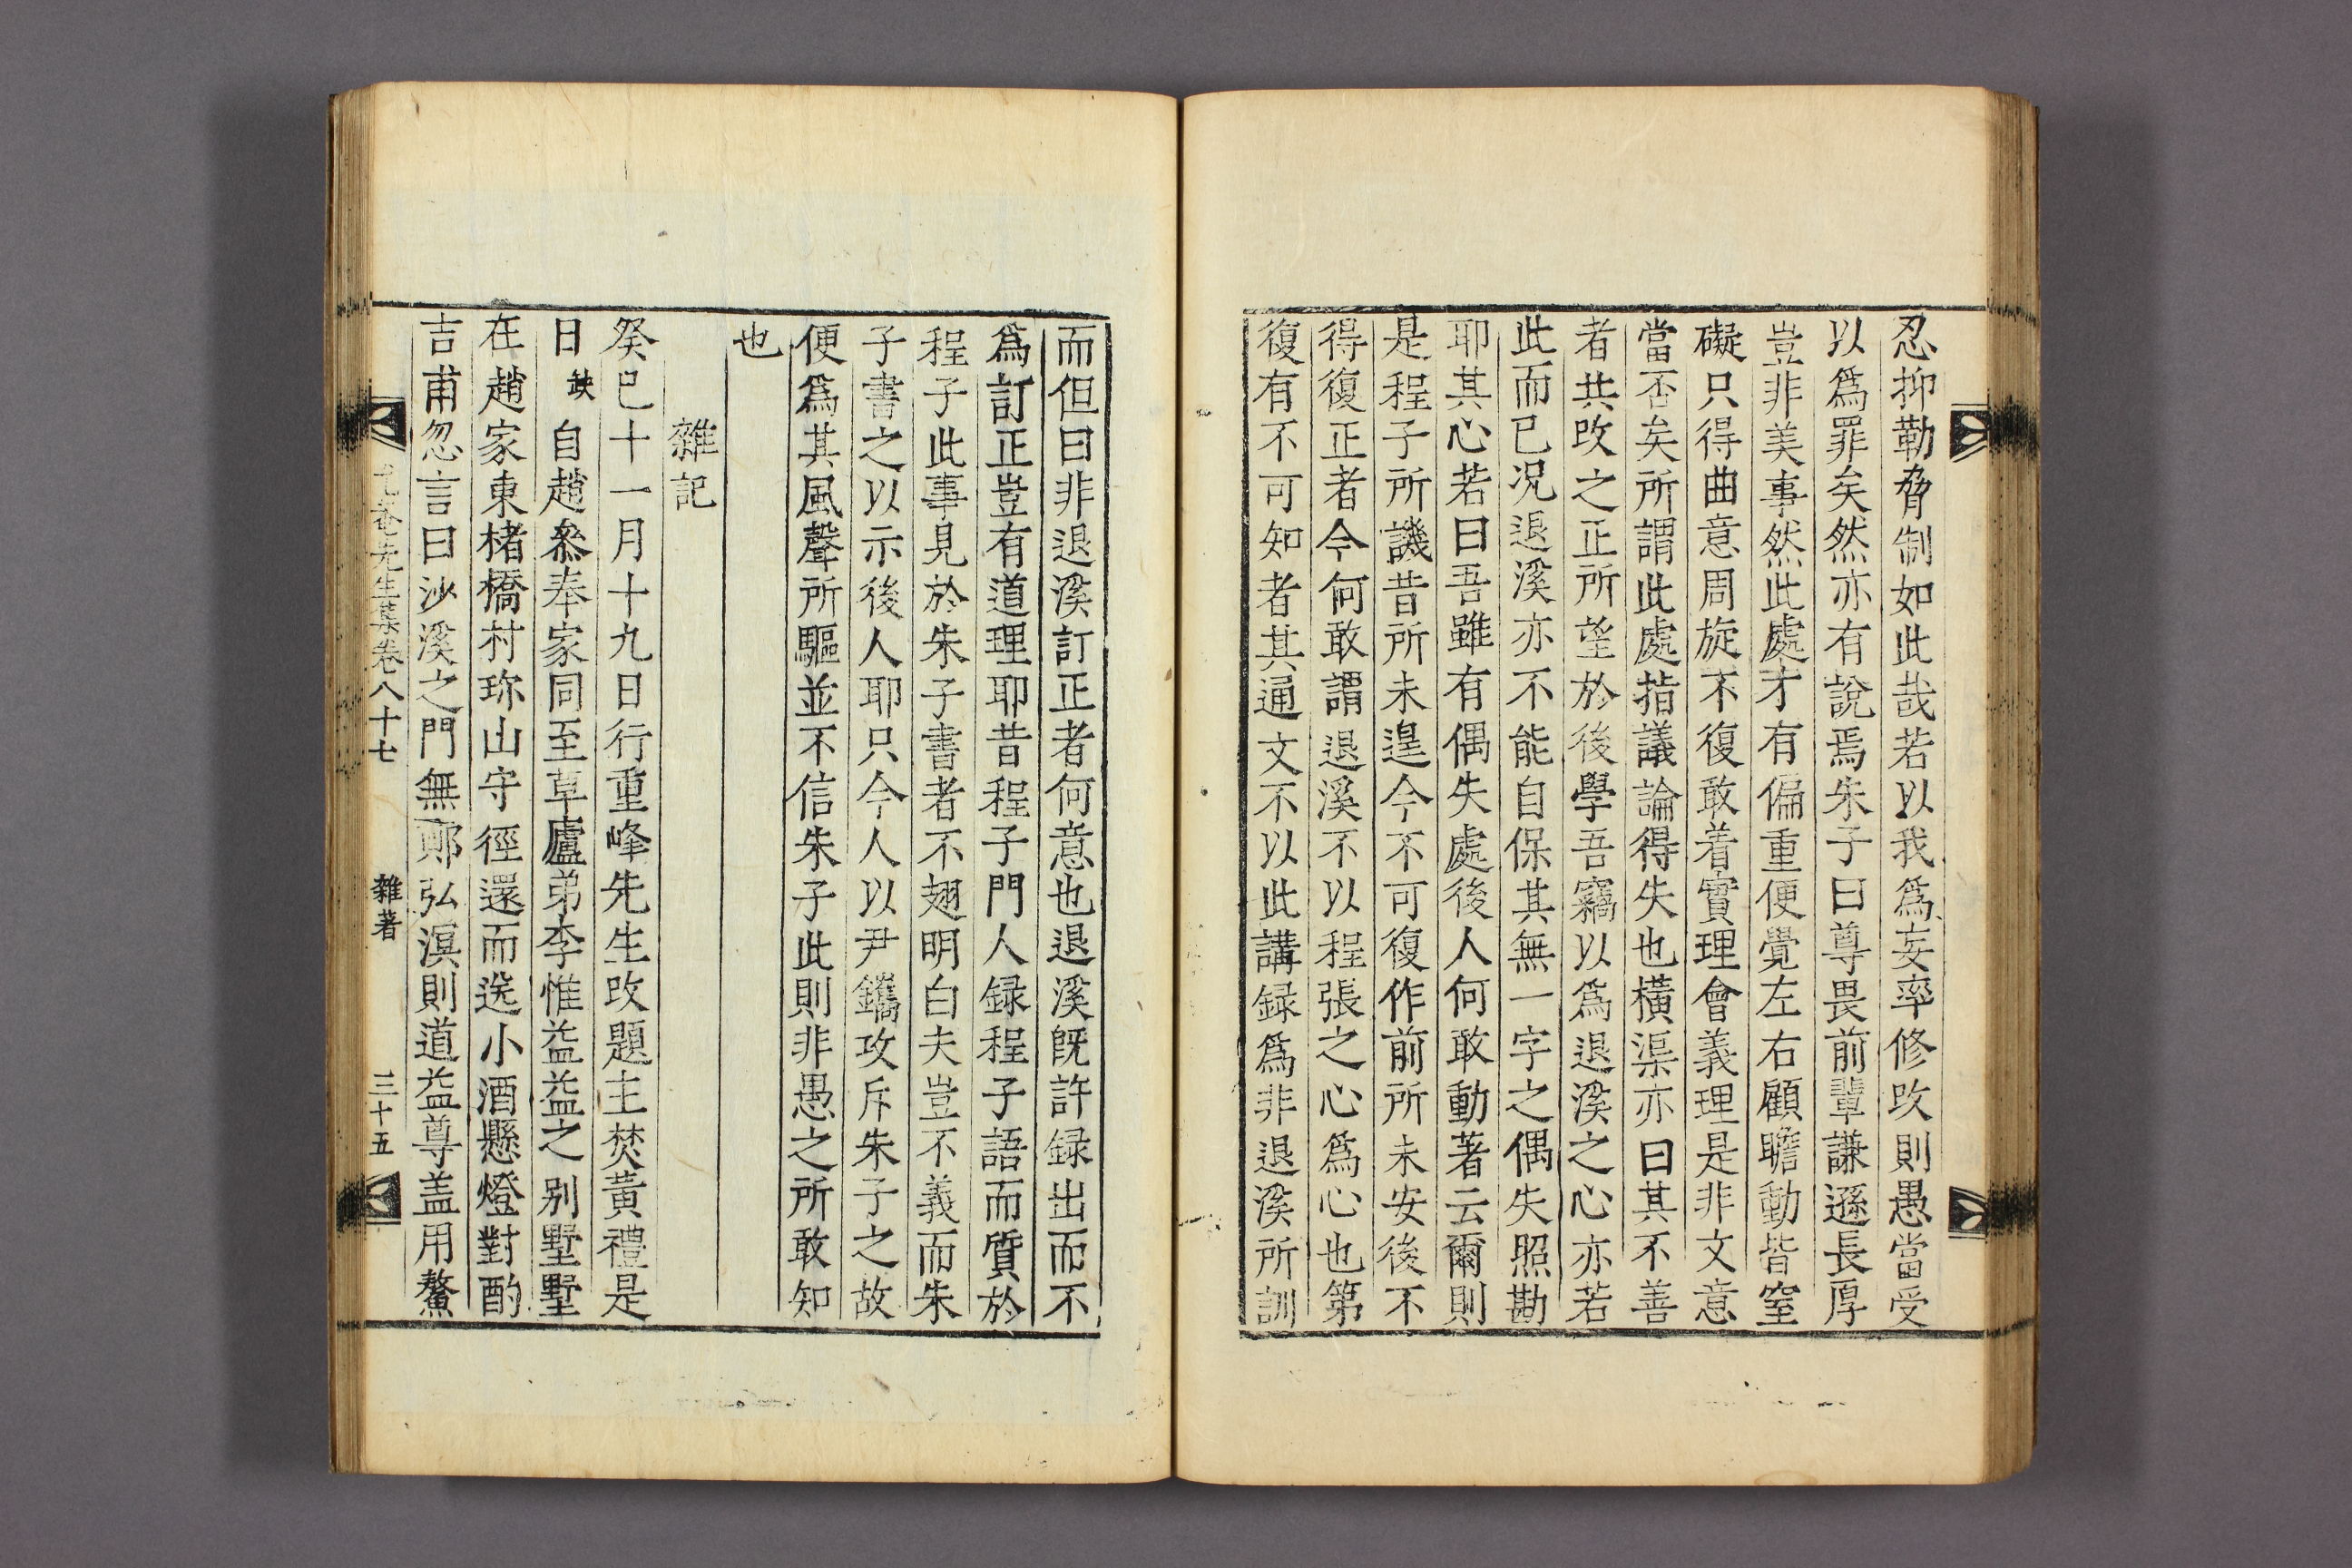 忍抑勒脅制如此哉若以我爲妄率修改則愚當受
以爲罪矣然亦有說焉朱子曰尊畏前輩謙遜長厚
豈非美事然此處才有偏重便覺左右顧瞻動皆窒
礙只得曲意周旋不復敢着實理會義理是非文意
當否矣所謂此處指議論得失也橫渠亦曰其不善
者共改之正所望於後學吾竊以爲退溪之心亦若
此而已况退溪亦不能自保其無一字之偶失照勘
耶其心若曰吾雖有偶失處後人何敢動著云爾則
是程子所譏昔所未遑今不可復作前所未安後不
得復正者今何敢謂退溪不以程張之心爲心也第
復有不可知者其通文不以此講録爲非退溪所訓
而但曰非退溪訂正者何意也退溪旣許録出而不
爲訂正豈有道理耶昔程子門人録程子語而質於
程子此事見於朱子書者不翅明白夫豈不義而朱
子書之以示後人耶只今人以尹鑴攻斥朱子之故
便爲其風聲所驅並不信朱子此則非愚之所敢知
也
雜記
癸巳十一月十九日行重峰先生改題主焚黃禮是
日缺自趙叅奉家同至草廬弟李惟益益之別墅墅
在趙家東楮橋村珎山守徑還而送小酒懸燈對酌
吉甫忽言曰沙溪之門無鄭弘溟則道益尊盖用鰲
先生集卷八十七 雜著 三十五